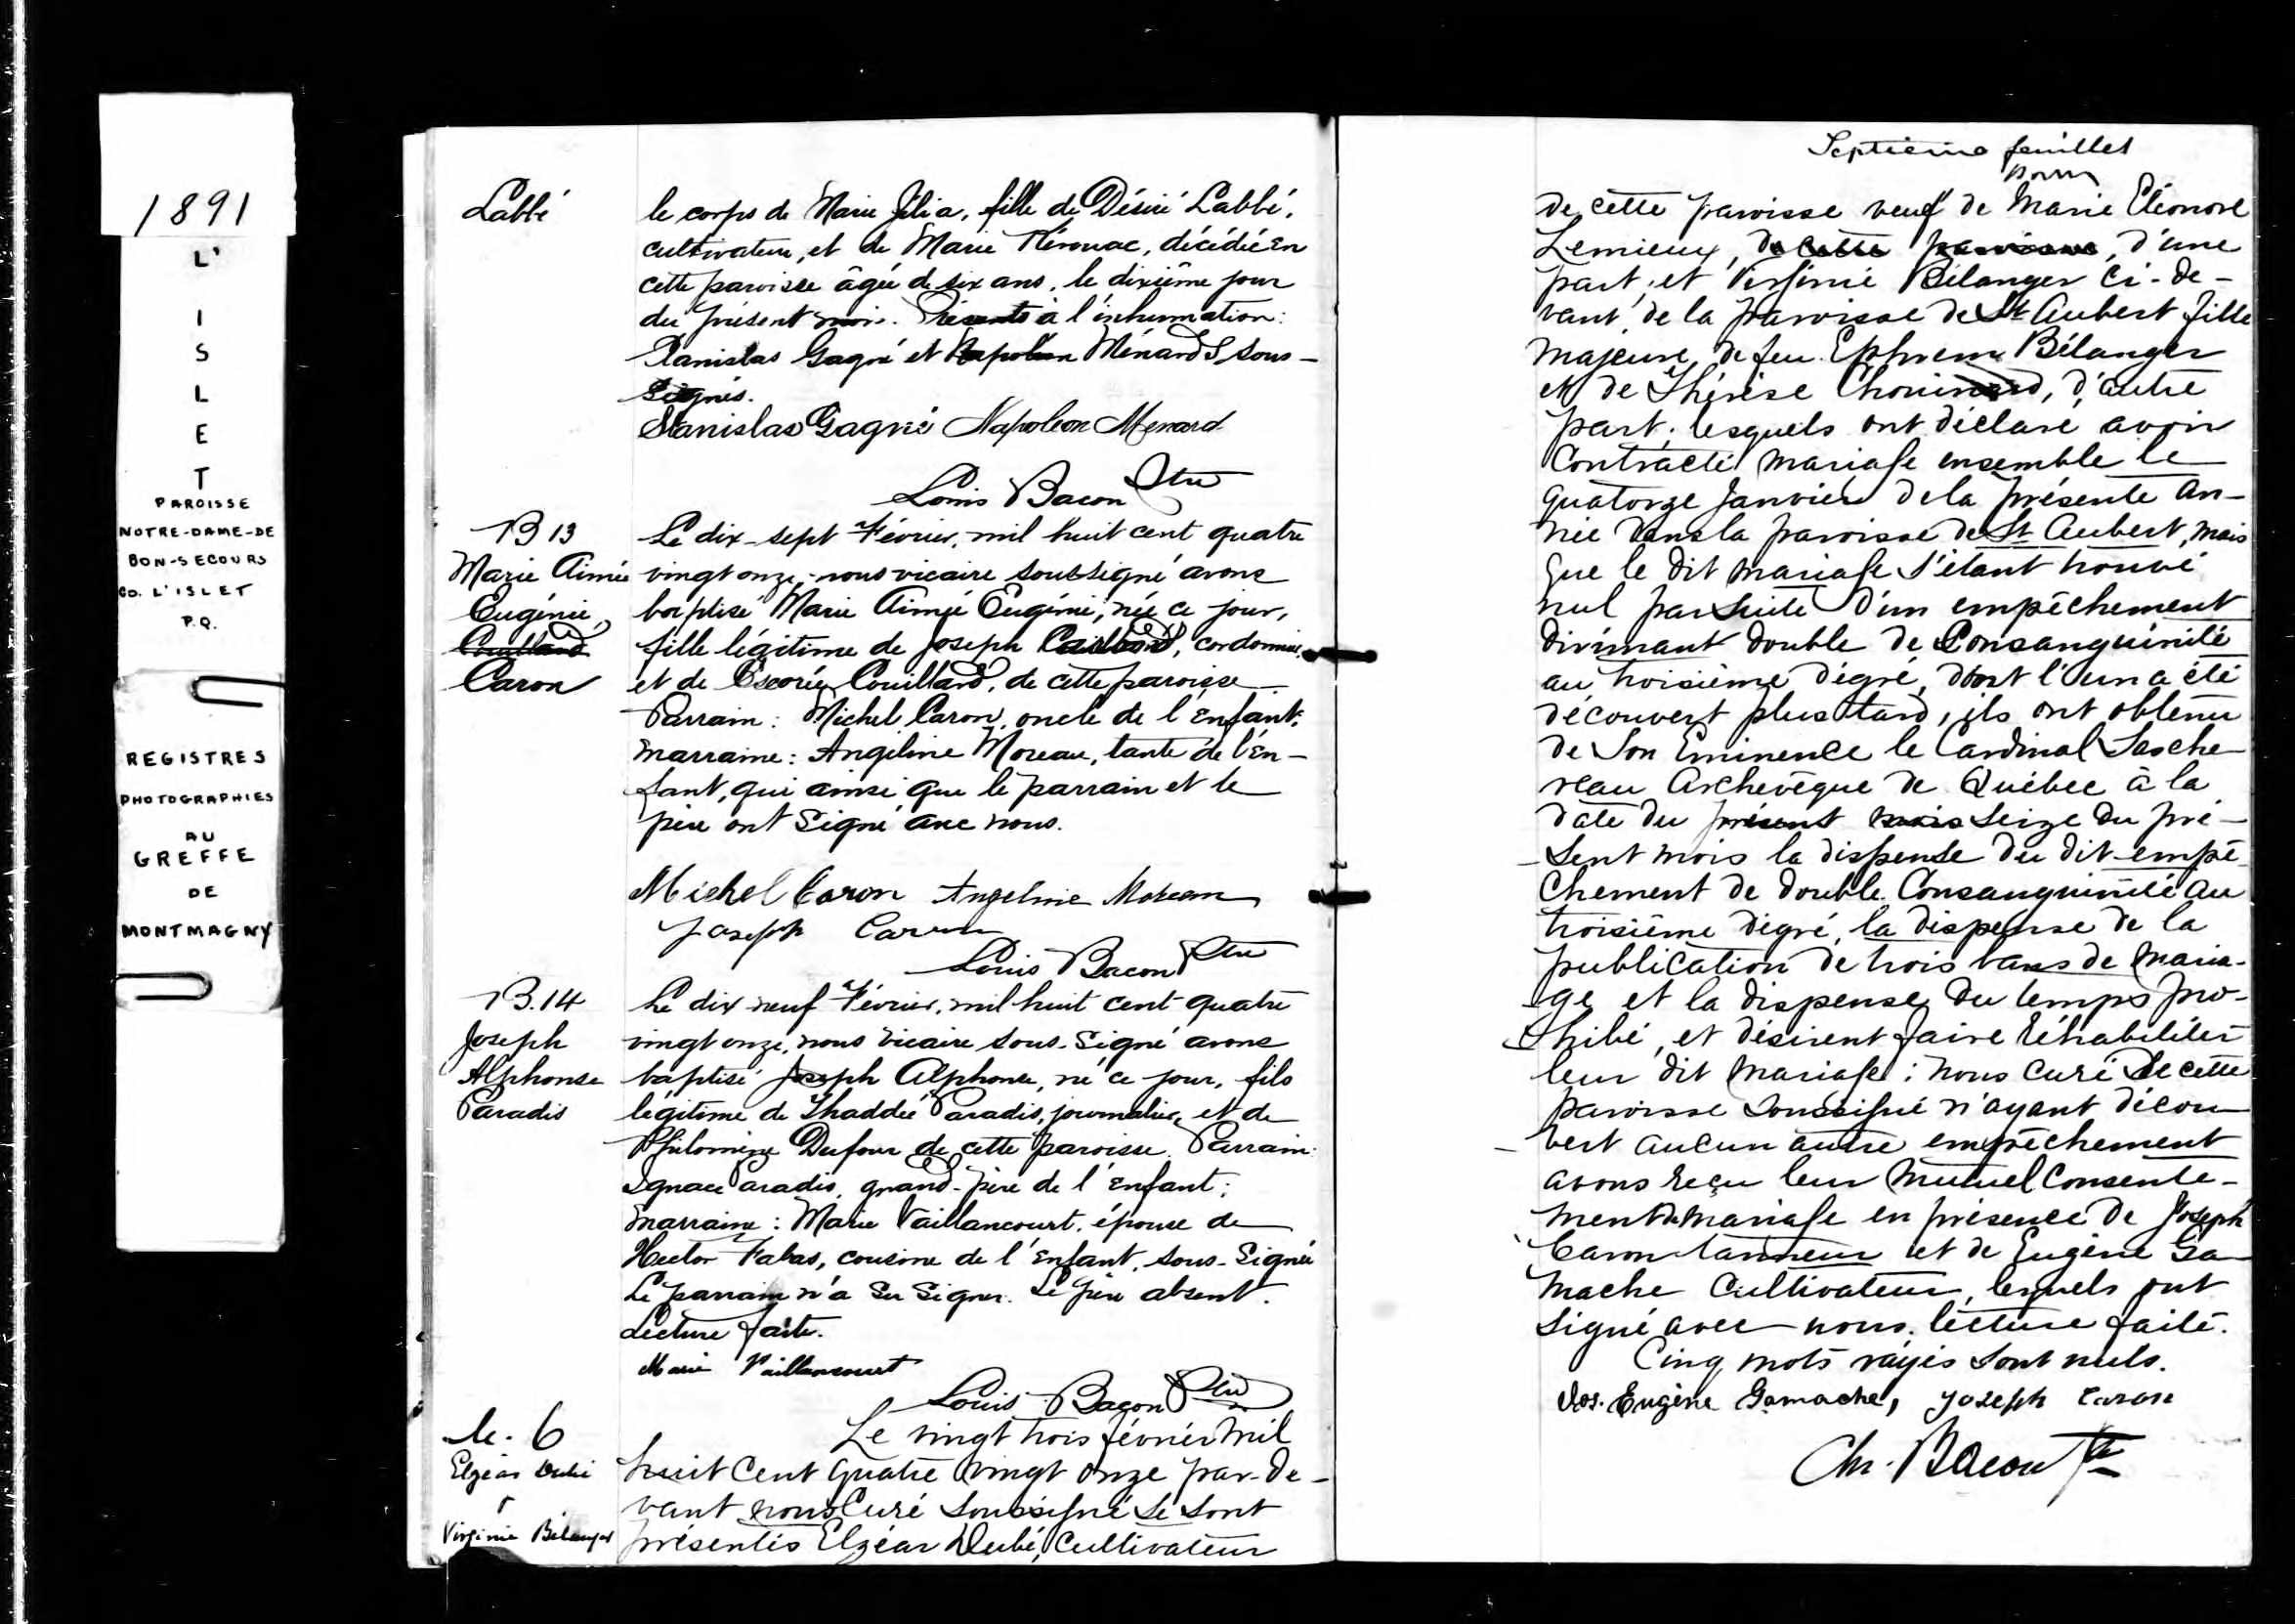 1891
L'
I
S
L
E
T
PAROISSE
NOTRE-DAME-DE
BON-SECOURS
CO. L'ISLET
P.Q.
REGISTRES
PHOTOGRAPHIES
AU
GREFFE
DE
MONTMAGNY
Labbé
le corps de Marie Jélia, fille de Désiré Labbé,
cultivateur, et de Marie Kérouac, décédée en
cette paroisse âgée de six ans, le dixième jour
du présent mois. Présents à l'inhumation:
Stanislas Gagné et Napoléon Ménard, sous-
signés.
Stanislas Gagné Napoleon Menard
Louis Bacon Ptre
B 13
Marie Aimée
Eugénie,
Couillard
Caron
Le dix-sept Février, mil huit cent quatre
vingt onze, nous vicaire soussigné avons
baptisé Marie Aimée Eugénie, née ce jour,
fille légitime de Joseph, cordonnier,
et de Couillard, de cette paroisse
Parrain: Michel Caron, oncle de l'enfant;
marraine: Angeline Moreau, tante de l'en-
fant, qui ainsi que le parrain et le
père ont signé avec nous.
Michel Caron Angelinie Moreau
Joseph Caron
Louis Bacon Ptre
B.14
Joseph
Alphonse
Paradis
Le dix neuf Février, mil huit cent quatre
vingt onze, nous vicaire sous-signé avons
baptisé Joseph Alphonse, né ce jour, fils
légitime de Thaddée Paradis, journalier, et de
Philomène Dufour de cette paroisse. Parrain:
Ignace Paradis, grand-père de l'enfant;
marraine: Marie Vaillancourt, épouse de
Hector Fabas, cousine de l'enfant, sous-signée
Le parrain n'a su signer. Le père absent.
Lecture faite.
Marie Vaillancourt
Louis Bacon Ptre
M. 6
Elzéar Dubé
&
Virginie Bélanger
Le vingt trois février mil
huit cent quatre vingt onze par-de-
vant nous Curé soussigné se sont
présentés Elzéar Dubé, cultivateur
Septième feuillet
de cette paroisse veuf de Marie Eléonore
Lemieux, de cette paroisse, d'une
part; et Virginie Bélanger ci-de-
vant de la paroisse de St Aubert fille
majeure de feu Ephrem Bélanger
et de Thérèse Chouinard, d'autre
part; lesquels ont déclaré avoir
contracté mariage ensemble le
quatorze Janvier de la présente an-
née dans la paroisse de St Aubert, mais
que le dit mariage s'étant trouvé
nul par suite d'un empêchement
dirimant double de Consanguinité
au troisième dégré, dont l'un a été
découvert plus tard, ils ont obtenu
de Son Eminence le Cardinal Tasche
reau Archevêque de Québec à la
date du présent mois seize du pré-
sent mois la dispense du dit empê-
chement de double Consanguinité au
troisième dégré, la dispense de la
publication de trois bans de maria-
ge et la dispense du temps pro-
hibé, et désirent faire réhabiliter
leur dit mariage; nous curé de cette
paroisse soussigné n'ayant décou
vert aucun autre empêchement
avons reçu leur mutuel consente-
ment de mariage en présence de Joseph
Caron tanneur et de Eugène Ga
mache cultivateur, lesquels ont
signé avec nous. lecture faite.
Cinq mots rayés sont nuls.
Jos. Eugène Gamache, Joseph Caron
Chs. Bacon Ptre